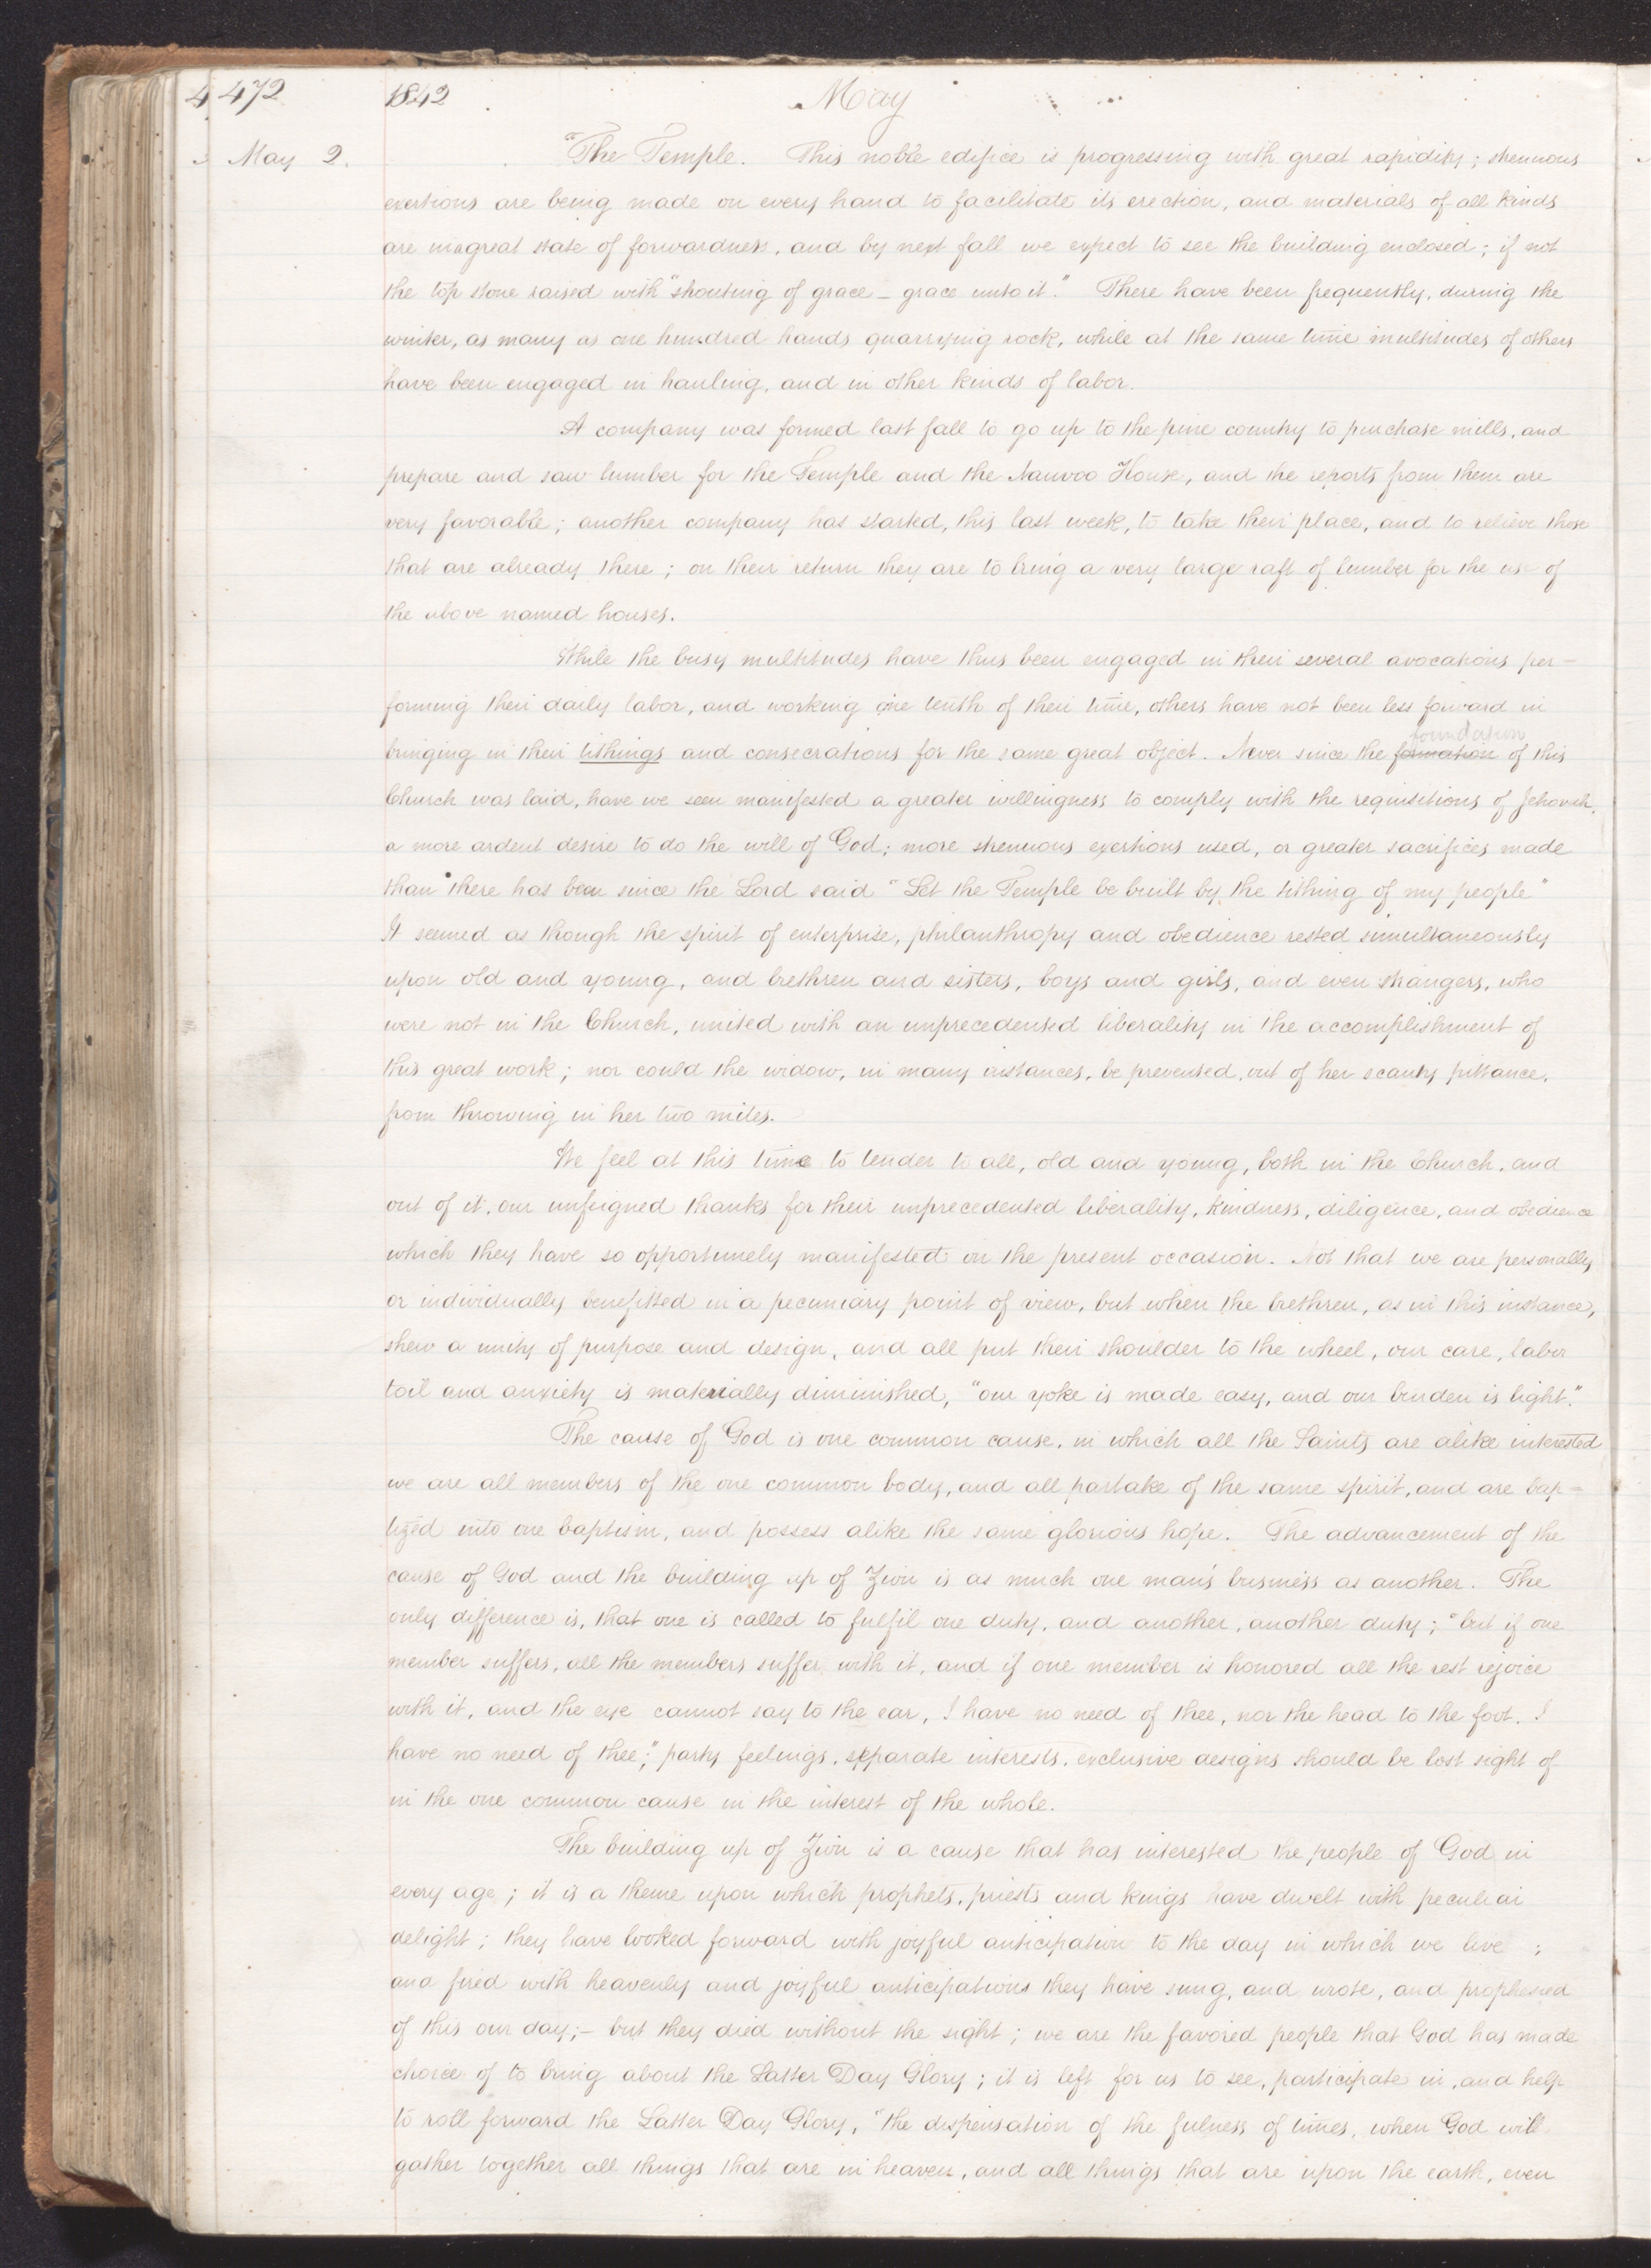 472 1842 May
May 2. "The Temple. This noble edifice is progressing with great rapidity; strenuous
exertions are being made on every hand to facilitate its erection, and materials of all kinds
are in a great state of forwardness, and by next fall we expect to see the building enclosed; if not
the top stone raised with "shouting of grace — grace unto it." There have been frequently, during the
winter, as many as one hundred hands quarrying rock, while at the same time multitudes of others
have been engaged in hauling, and in other kinds of labor.
A company was formed last fall to go up to the pine country to purchase mills, and
prepare and saw lumber for the Temple and the Nauvoo House, and the reports from them are
very favorable; another company has started, this last week, to take their place, and to relieve those
that are already there; on their return they are to bring a very large raft of lumber for the use of
the above named houses.
While the busy multitudes have thus been engaged in their several avocations per-
forming their daily labor, and working one tenth of their time, others have not been less forward in
foundation
bringing in their tithings and consecrations for the same great object. Never since the formation of this
Church was laid, have we seen manifested a greater willingness to comply with the requisitions of Jehovah,
a more ardent desire to do the will of God; more strenuous exertions used, or greater sacrifices made
than there has been since the Lord said "Let the Temple be built by the tithing of my people"
It seemed as though the spirit of enterprise, philanthropy and obedience rested simultaneously
upon old and young, and brethren and sisters, boys and girls, and even strangers, who
were not in the Church, united with an unprecedented liberality in the accomplishment of
this great work; nor could the widow, in many instances, be prevented, out of her scanty pittance,
from throwing in her two mites.
We feel at this time to tender to all, old and young, both in the Church, and
out of it, our unfeigned thanks for their unprecedented liberality, kindness, diligence, and obedience
which they have so opportunely manifested on the present occasion. Not that we are personally
or individually benefitted in a pecuniary point of view, but when the brethren, as in this instance,
shew a unity of purpose and design, and all put their shoulder to the wheel, our care, labor
toil and anxiety is materially diminished, "our yoke is made easy, and our burden is light."
The cause of God is one common cause, in which all the Saints are alike interested
we are all members of the one common body, and all partake of the same spirit, and are bap-
tized into one baptism, and possess alike the same glorious hope. The advancement of the
cause of God and the building up of Zion is as much one man's business as another. The
only difference is, that one is called to fulfil one duty, and another, another duty; "but if one
member suffers, all the members suffer with it, and if one member is honored all the rest rejoice
with it, and the eye cannot say to the ear, I have no need of thee, nor the head to the foot. I
have no need of thee;" party feelings, separate interests, exclusive designs should be lost sight of
in the one common cause in the interest of the whole.
The building up of Zion is a cause that has interested the people of God in
every age; it is a theme upon which prophets, priests and kings have dwelt with peculiar
delight; they have looked forward with joyful anticipation to the day in which we live;
and fired with heavenly and joyful anticipations they have sung, and wrote, and prophesied
of this our day;— but they died without the sight; we are the favored people that God has made
choice of to bring about the Latter Day Glory; it is left for us to see, participate in, and help
to roll forward the Latter Day Glory, "the dispensation of the fulness of times, when God will
gather together all things that are in heaven, and all things that are upon the earth, even